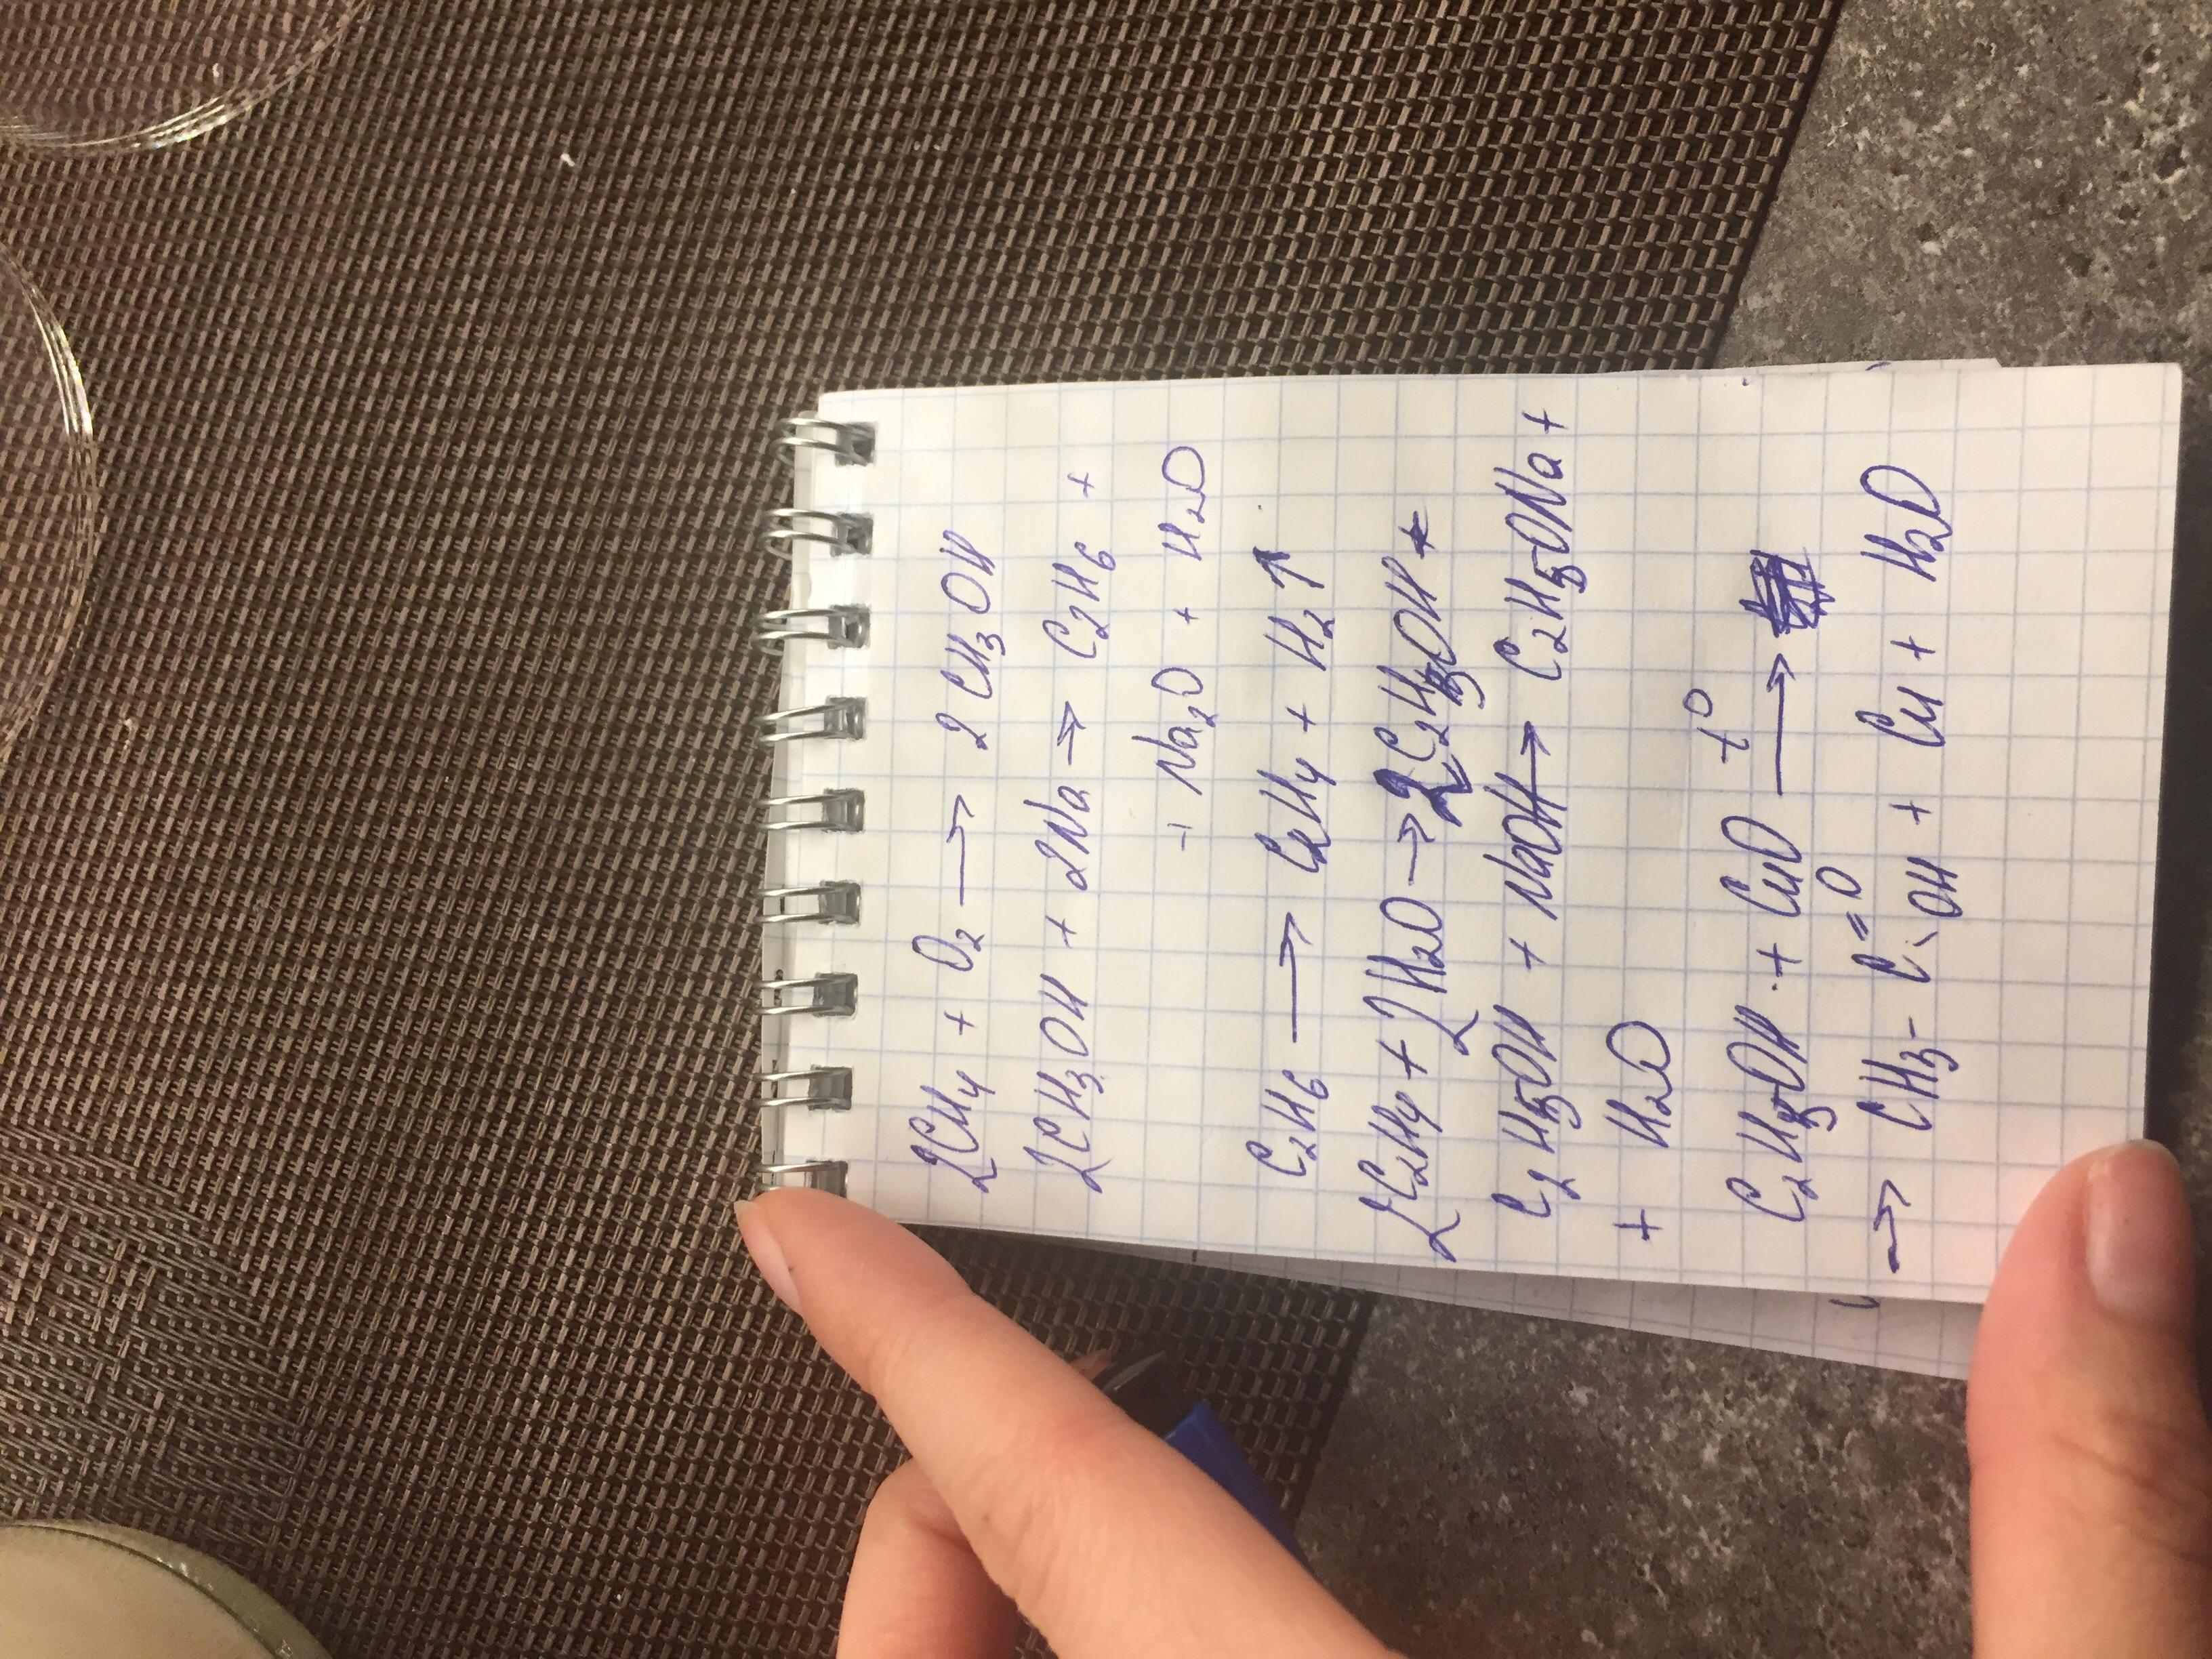 2CH₄ + O₂ → 2CH₃OH
2CH₃OH + 2Na → C₂H₆ +
+ Na₂O + H₂O
C₂H₆ → C₂H₄ + H₂↑
2C₂H₄ + 2H₂O → 2C₂H₅OH
C₂H₅OH + NaOH → C₂H₅ONa +
+ H₂O
t°
C₂H₅OH + CuO →
=O
→ CH₃-C-OH + Cu + H₂O